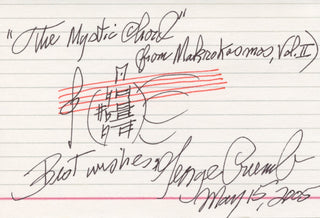 "The Mystic Chord"
(from Makrokosmos, Vol. II)
Best wishes,
George Crumb
May 15, 2005